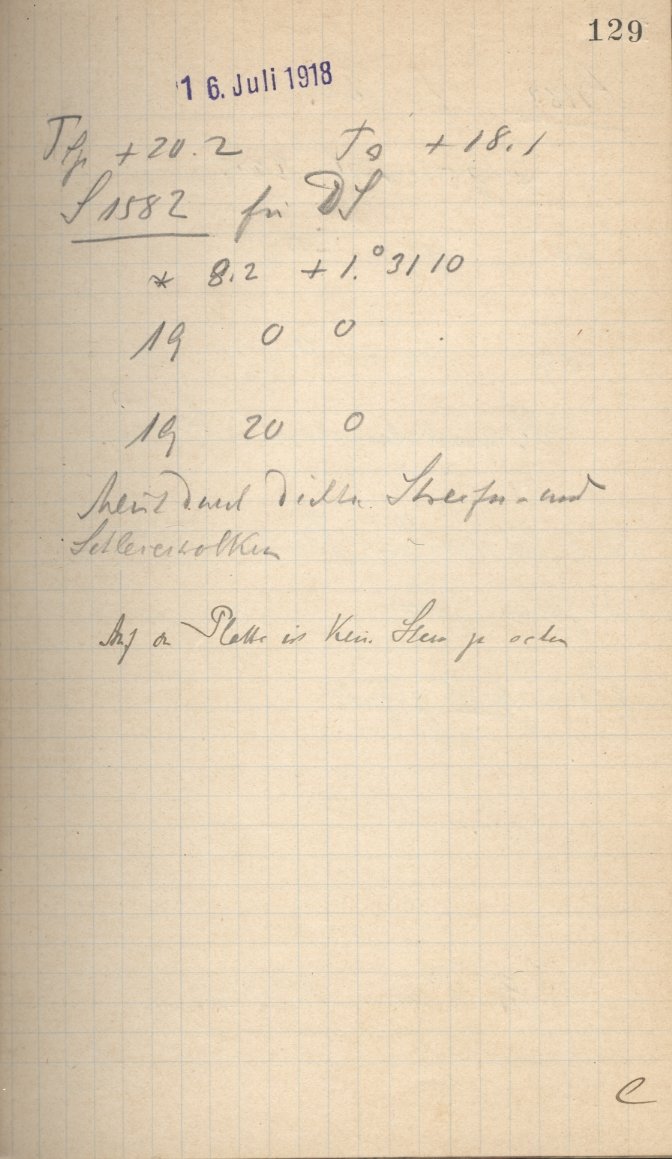 129
16. Juli 1918
+20.2 Ts +18.1
S 1582 für DS
* 8.2 +1.°3110
19 0 0
19 20 0
dichte Streifen- und
Schleierwolken
Auf der Platte ist kein Stern zu sehen
C